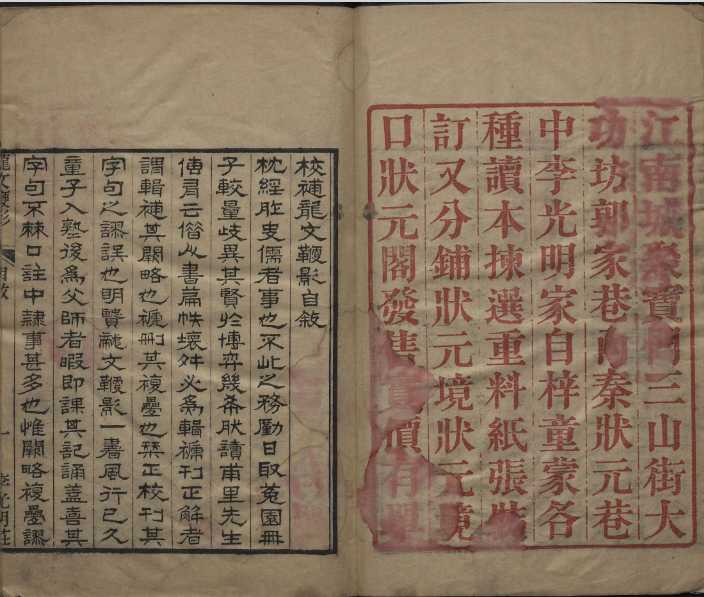 江南城聚寶門三山街大
功坊郭家巷內秦狀元巷
中李光明家自梓童蒙各
種讀本揀選重料紙張裝
訂又分鋪狀元境狀元境
口狀元閣發售實價有單
校補龍文鞭影自敘
枕經胙史儒者事也不此之務勤日取兔園冊
子較量歧異其賢於博弈幾希肰讀甫里先生
傳有云借人書篇帙壞舛必為輯褫刊正解者
謂輯補其闕略也褫刪其複疊也栞正校刊其
字句之謬誤也明賢龍文鞭影一書風行已久
童子入塾後為父師者暇即課其記誦蓋喜其
字句不棘口註中隸事甚多也惟闕略複疊謬
龍文鞭影
自敘
一
李光明莊